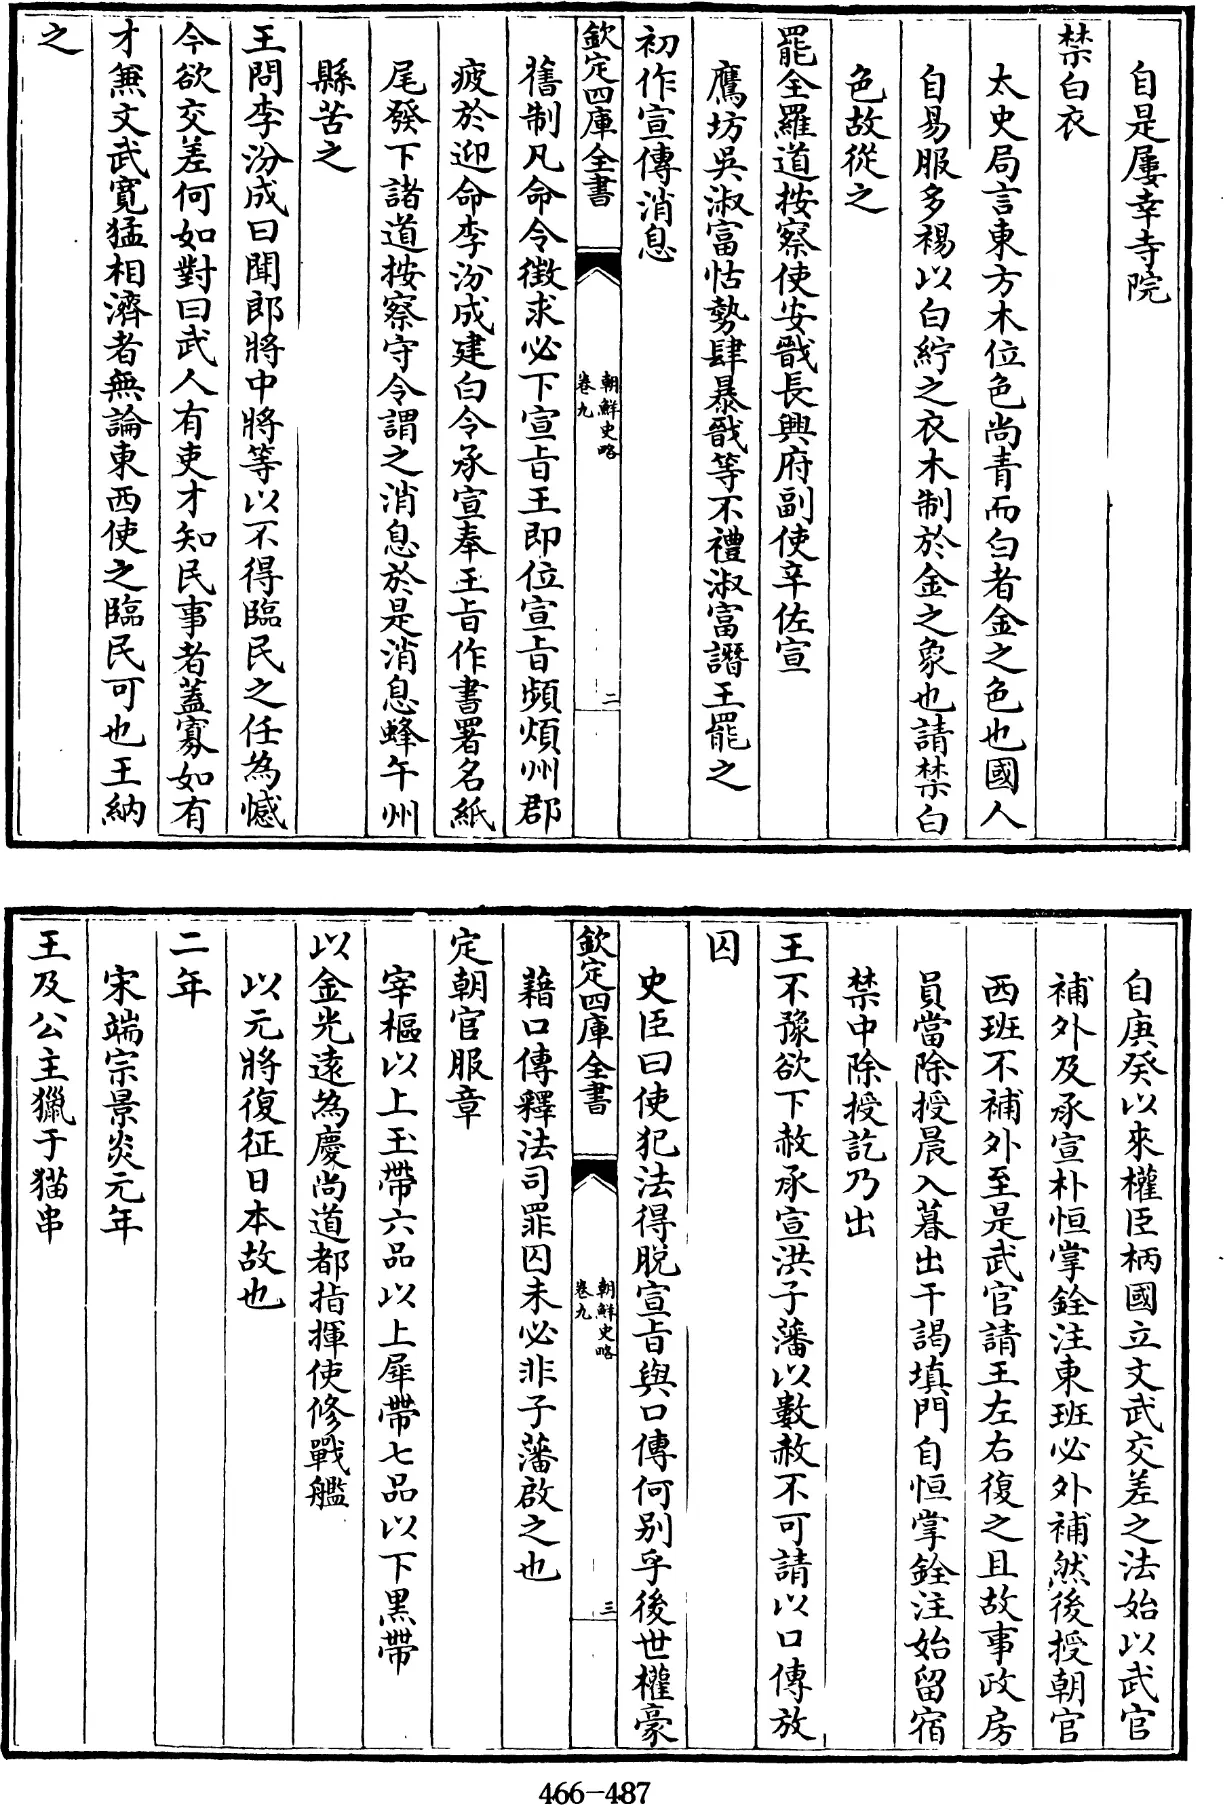 自是屢幸寺院
禁白衣
太史局言東方木位色尚青而白者金之色也國人
自易服多裼以白紵之衣木制於金之象也請禁白
色故從之
罷全羅道按察使安戩長興府副使辛佐宣
鷹坊吳淑富怙勢肆暴戩等不禮淑富譖王罷之
初作宣傳消息
欽定四庫全書
朝鮮史略
卷九
二
舊制凡命令徵求必下宣旨王即位宣旨頻煩州郡
疲於迎命李汾成建白令承宣奉王旨作書署名紙
尾發下諸道按察守令謂之消息於是消息蜂午州
縣苦之
王問李汾成曰聞郎將中將等以不得臨民之任為憾
今欲交差何如對曰武人有吏才知民事者蓋寡如有
才兼文武寛猛相濟者無論東西使之臨民可也王納
之
自庚癸以來權臣柄國立文武交差之法始以武官
補外及承宣朴恒掌銓注東班必外補然後授朝官
西班不補外至是武官請王左右復之且故事政房
員當除授晨入暮出干謁填門自恒掌銓注始留宿
禁中除授訖乃出
王不豫欲下赦承宣洪子藩以數赦不可請以口傳放
囚
史臣曰使犯法得脱宣旨與口傳何别乎後世權豪
欽定四庫全書
朝鮮史略
卷九
三
藉口傳釋法司罪囚未必非子藩啟之也
定朝官服章
宰樞以上玉帶六品以上犀帶七品以下黒帶
以金光逺為慶尚道都指揮使修戰艦
以元將復征日本故也
二年
宋端宗景炎元年
王及公主獵于猫串
466-487